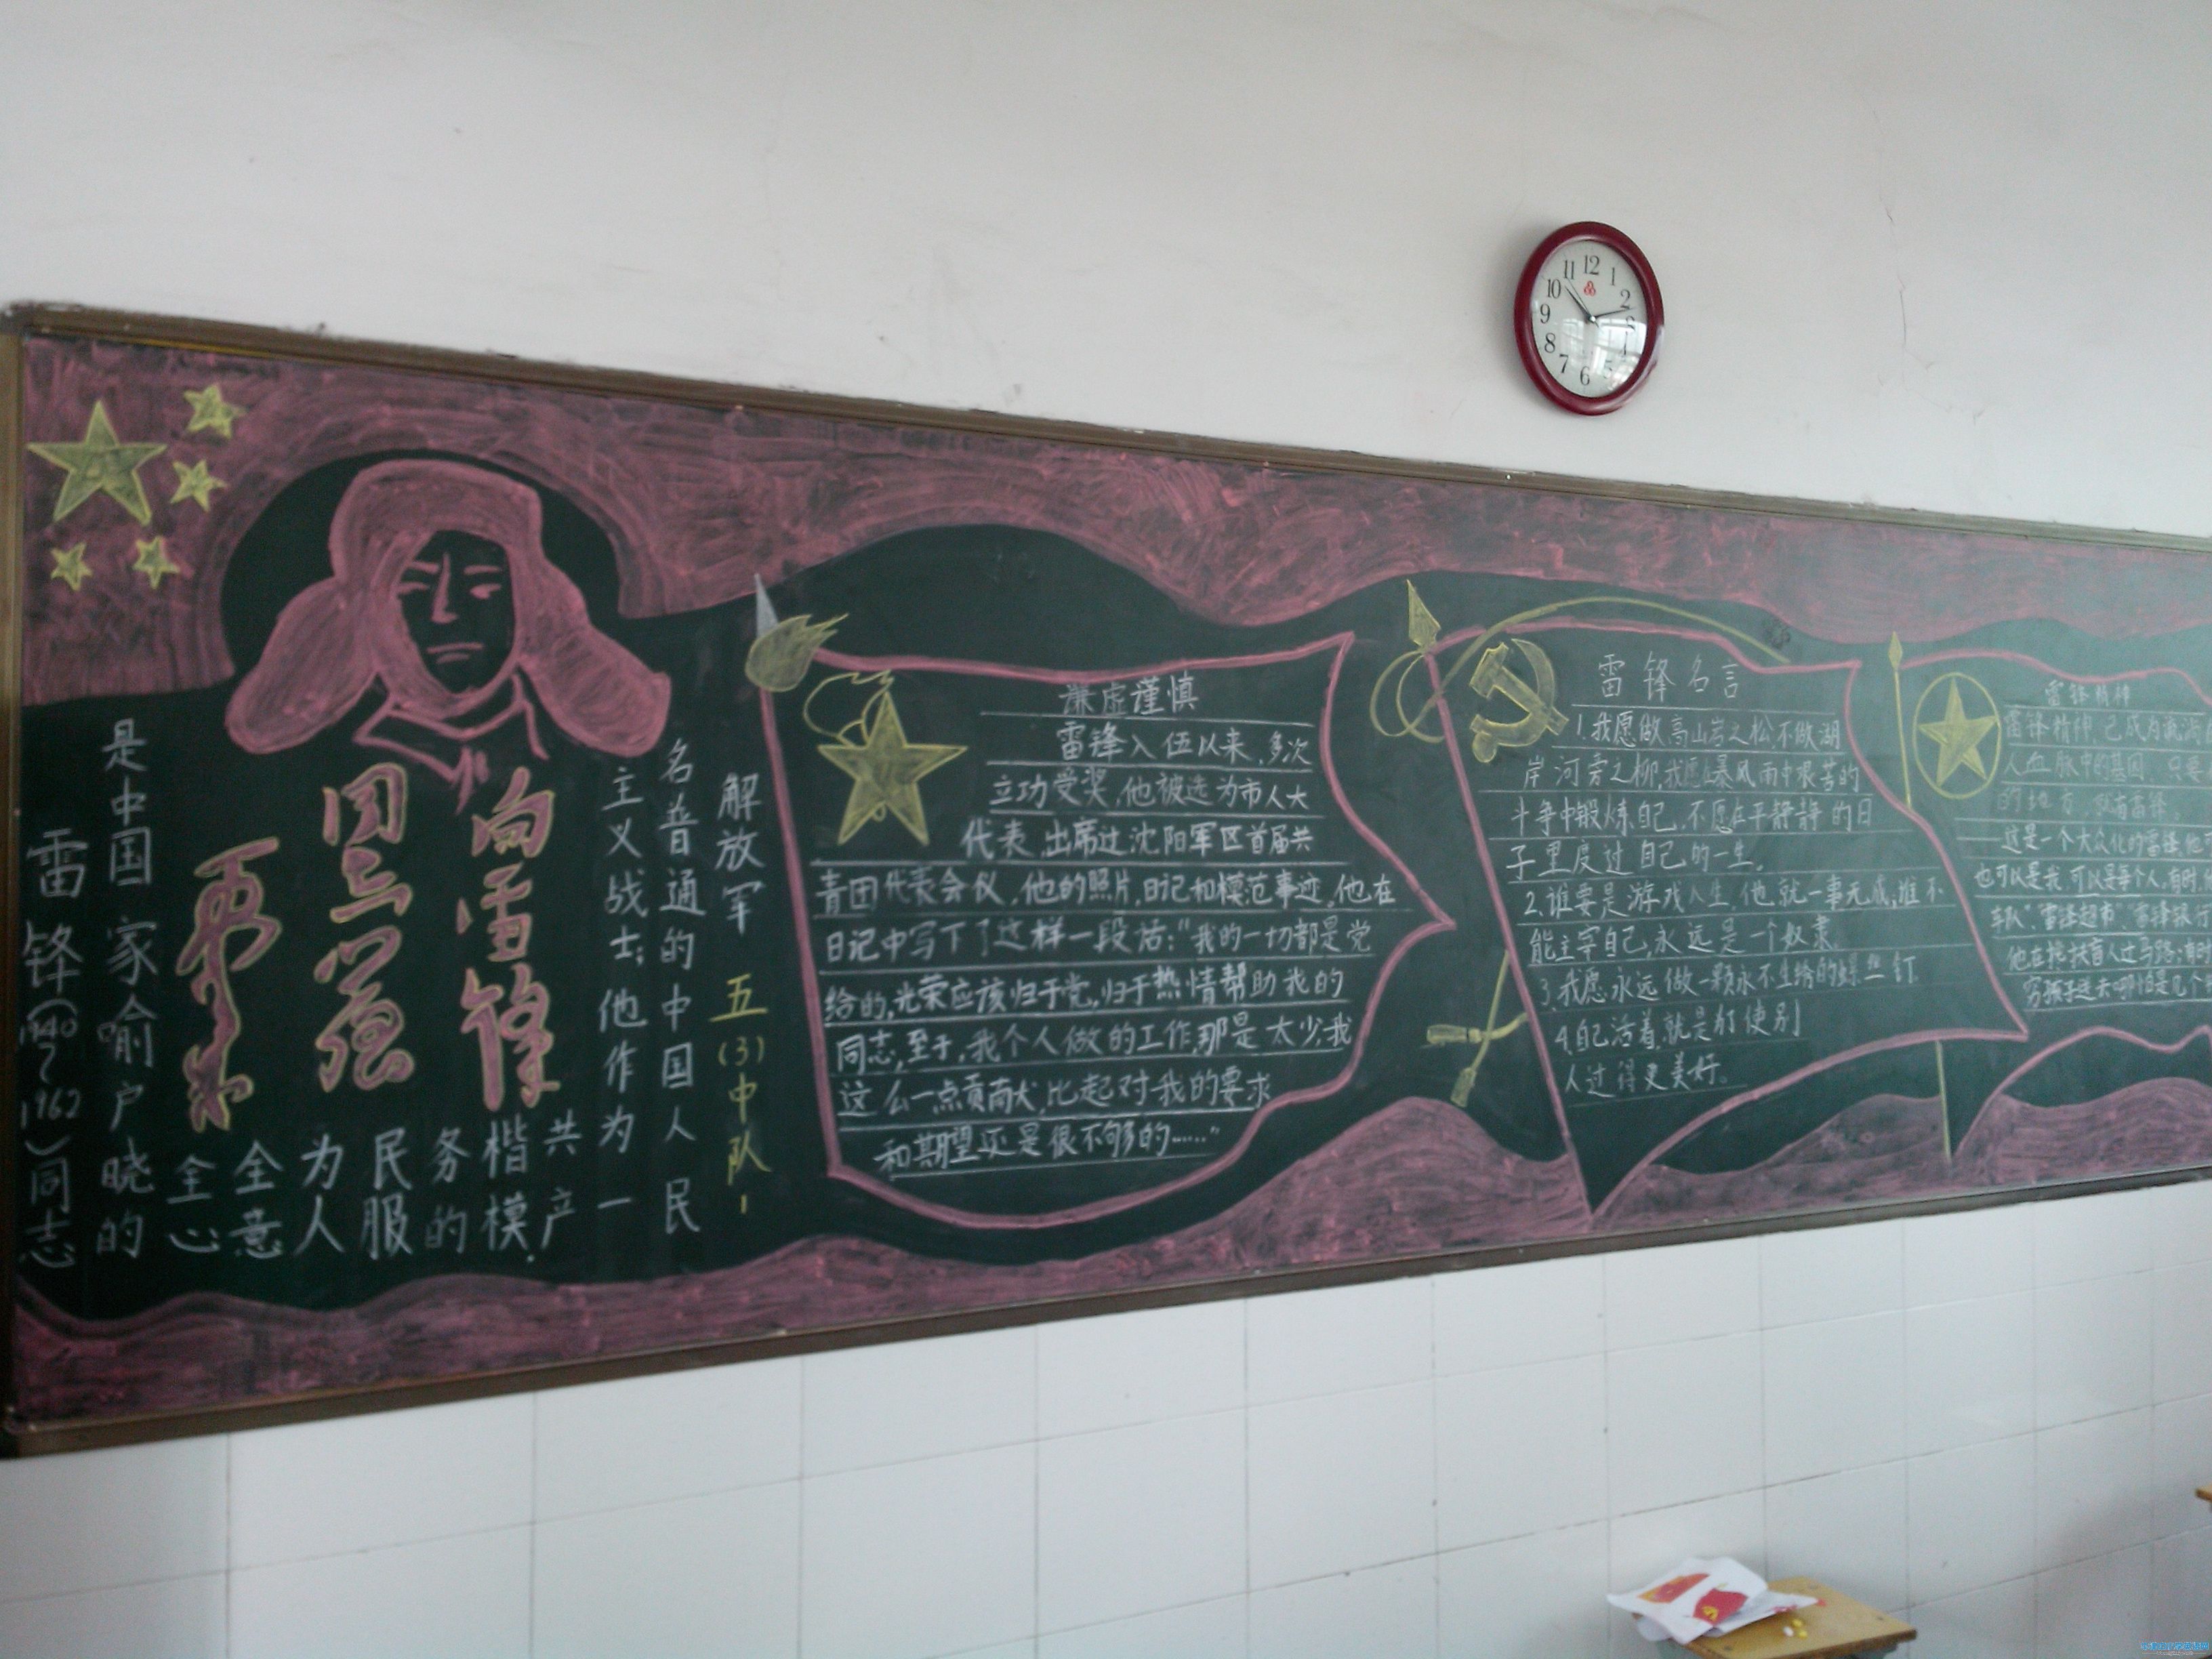 雷锋(1940~1962)同志
是中国家喻户晓的
全心
全意
为人
民服
务的
楷模.
共产
主义战士;他作为一
名普通的中国人民
解放军
五(3)中队
向雷锋
同志学习
毛泽东
谦虚谨慎
雷锋入伍以来,多次
立功受奖,他被选为市人大
代表,出席过沈阳军区首届共
青团代表会议,他的照片,日记和模范事迹,他在
日记中写下了这样一段话:“我的一切都是党
给的,光荣应该归于党,归于热情帮助我的
同志,至于,我个人做的工作,那是太少,我
这么一点贡献,比起对我的要求
和期望还是很不够的……”
雷锋名言
1.我愿做高山岩之松,不做湖
岸河旁之柳,我愿在暴风雨中艰苦的
斗争中锻炼自己,不愿在平静静的日
子里度过自己的一生。
2.谁要是游戏人生,他就一事无成,谁不
能主宰自己,永远是一个奴隶。
3.我愿永远做一颗永不生锈的螺丝钉
4.自己活着,就是为使别
人过得更美好。
雷锋精神
雷锋精神,已成为流淌
人血脉中的基因,只要
的地方,就有雷锋。
这是一个大众化的雷锋,他
也可以是我,可以是每个人,有时,
车队”“雷锋超市”“雷锋银
他在搀扶盲人过马路;有时
穷孩子送去哪怕是几个
12
1
2
3
4
5
6
7
8
9
10
11